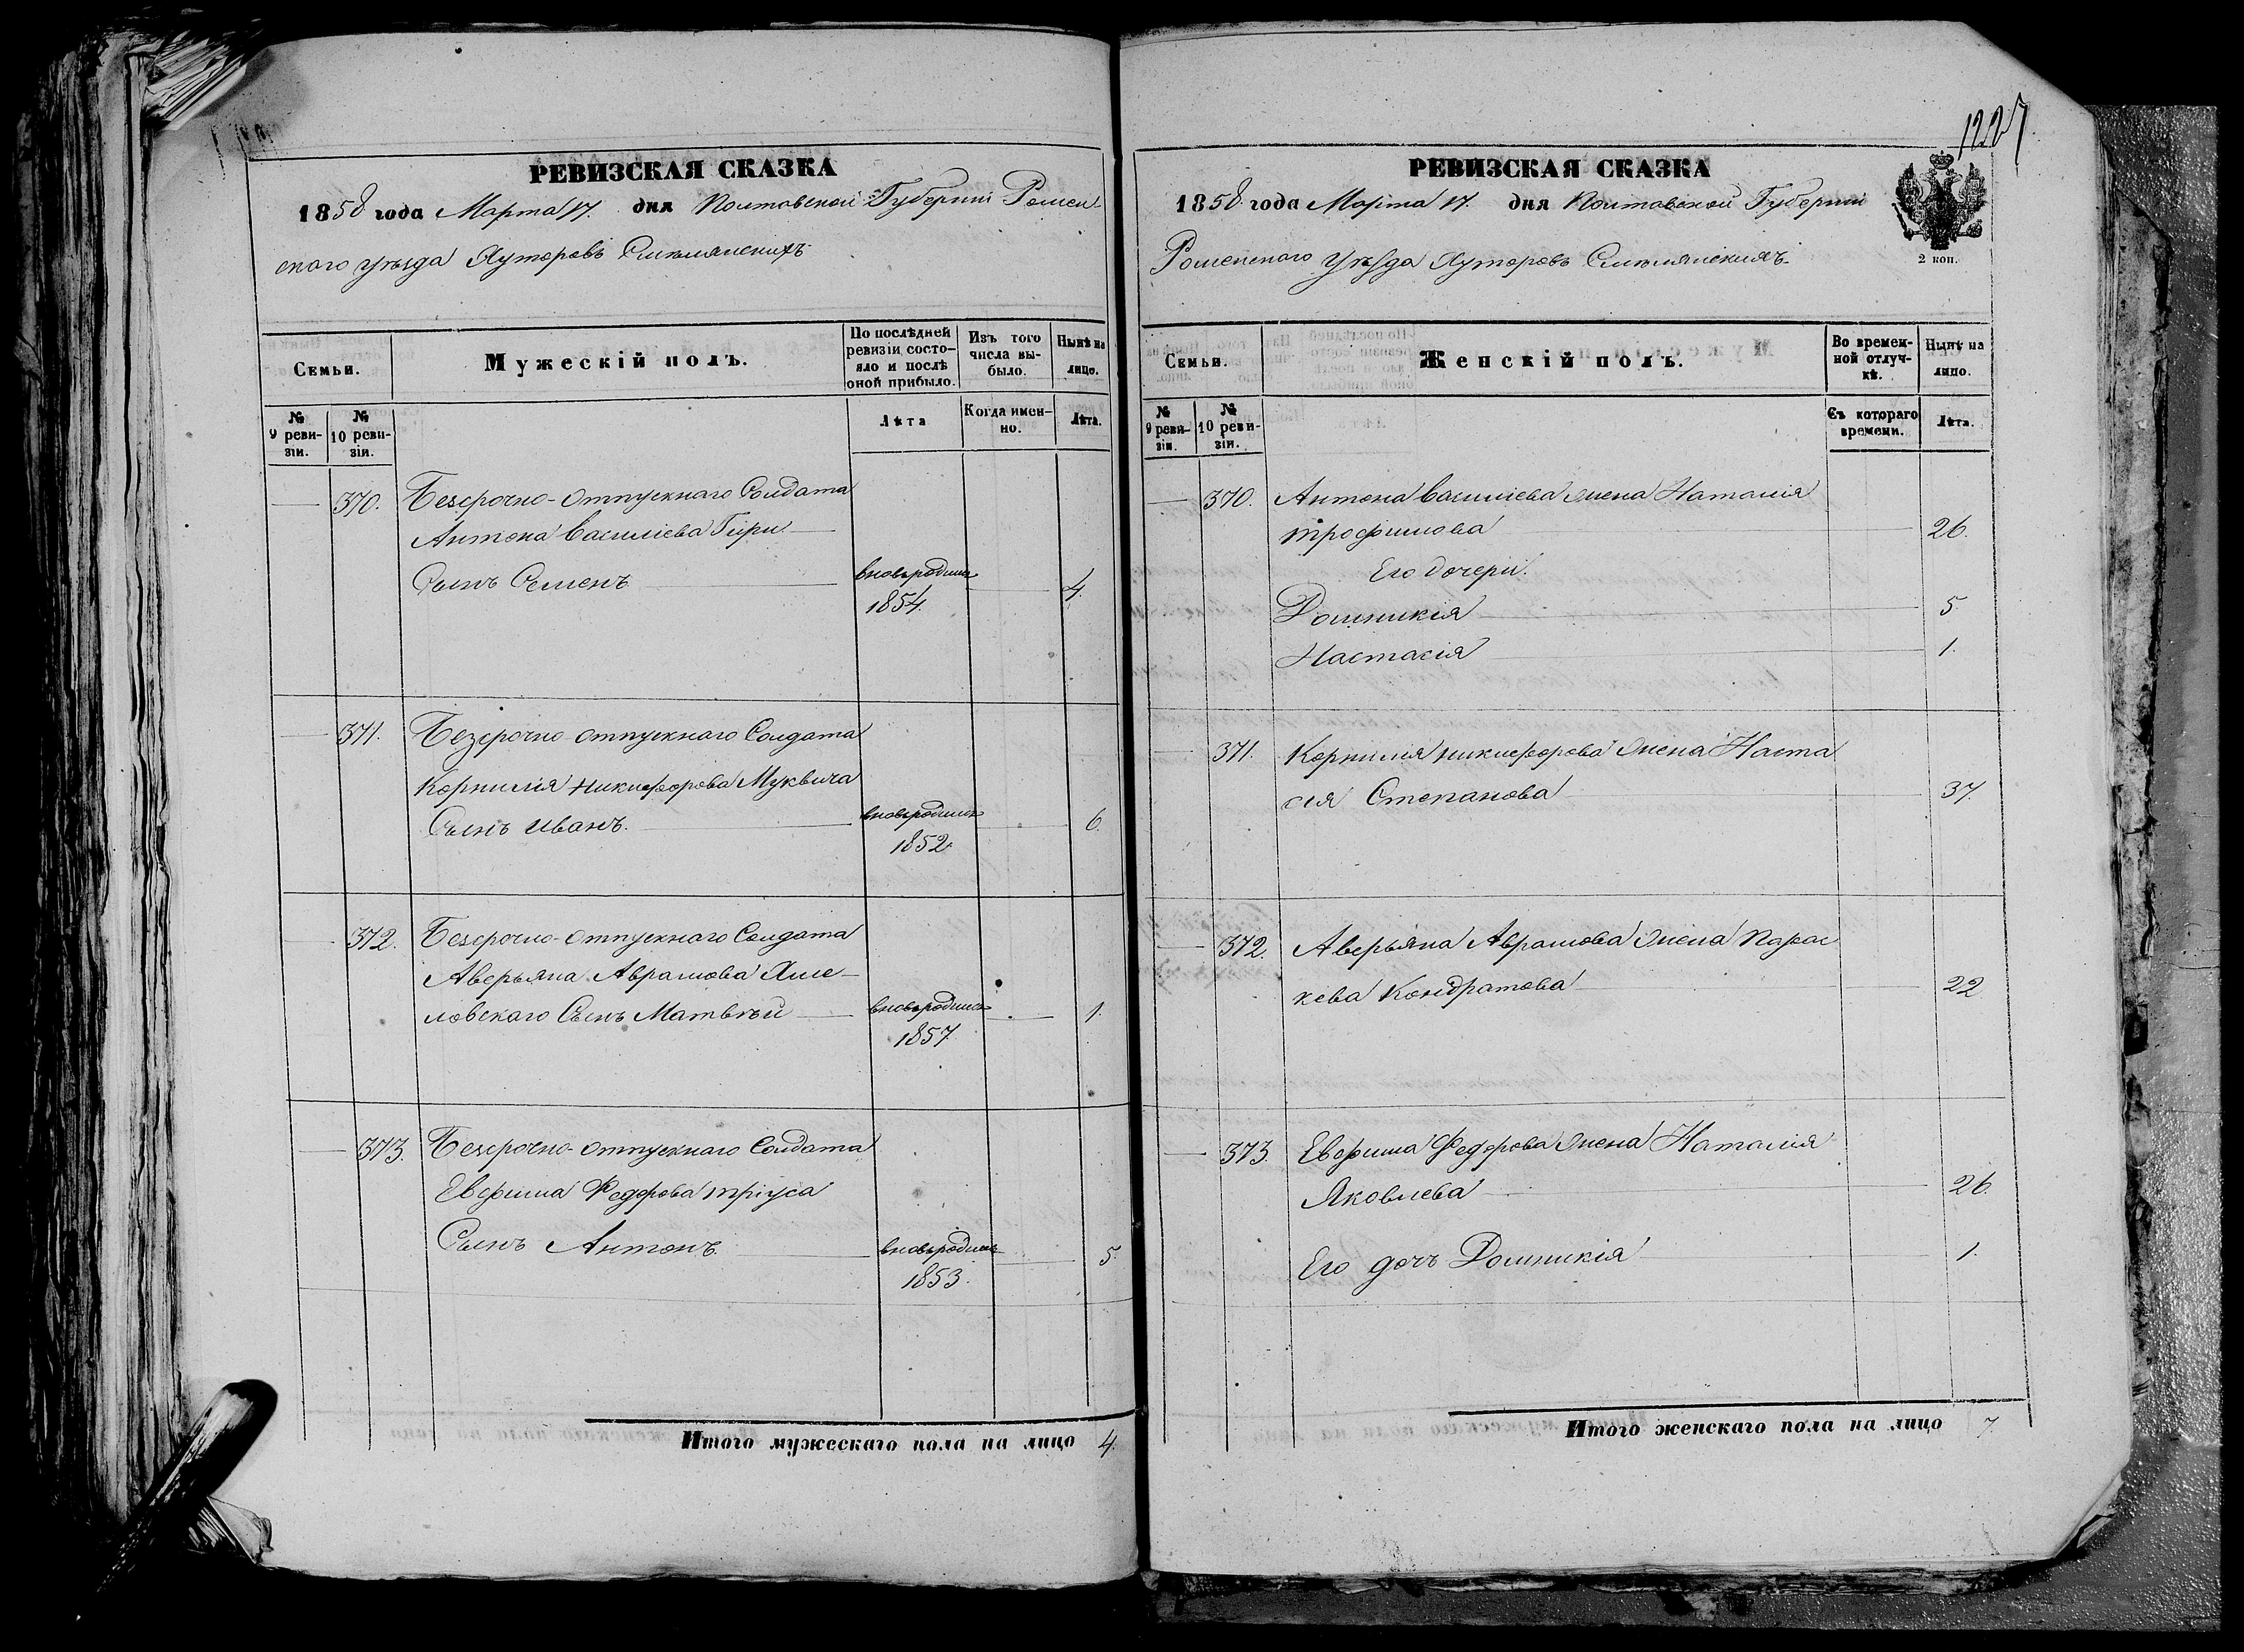 1227
РЕВИЗСКАЯ СКАЗКА
1858 года Марта 17. дня Полтавской Губерніи Ромен
ского уезда Хуторовъ Смѣлянскихъ
Семьи.
Мужескій полъ.
По послѣдней ревизіи состояло и послѣ оной прибыло.
Изъ того числа выбыло.
Нынѣ на лицо.
№ 9 ревизіи.
№ 10 ревизіи.
Лѣта
Когда именно.
Лѣта.
370. Безсрочно-отпускнаго Солдата
Антона Василіева Гири
Сынъ Семенъ вновьродился 4.
1854.
371. Безсрочно отпускнаго Солдата
Корнилія Никифорова Муквича
Сынъ Иванъ. вновьродился 6.
1852.
372. Безсрочно-отпускнаго Солдата
Аверьяна Аврамова
ловскаго Сынъ Матвѣй вновьродился 1.
1857.
373. Безсрочно-отпускнаго Солдата
Евфима Федорова Тріуса
Сынъ Антонъ вновьродился 5.
1853.
Итого мужескаго пола на лицо 4.
РЕВИЗСКАЯ СКАЗКА
1858 года Марта 17. дня Полтавской Губерніи
Роменского уѣзда Хуторовъ Смѣлянскихъ
2 коп.
Семьи.
Женскій полъ.
Во временной отлучкѣ.
Нынѣ на лицо.
№ 9 ревизіи.
№ 10 ревизіи.
Съ котораго времени.
Лѣта.
370. Антона Василіева жена Наталія
Трофимова 26.
Его дочери.
Домникія 5
Настасія 1.
371. Корнилія Никифорова жена Наста
сія Степанова 37.
372. Аверьяна Аврамова жена Парас
кева Кондратова 22
373. Евфима Федорова жена Наталія
Яковлева 26.
Его дочъ Домникія 1.
Итого женскаго пола на лицо 7